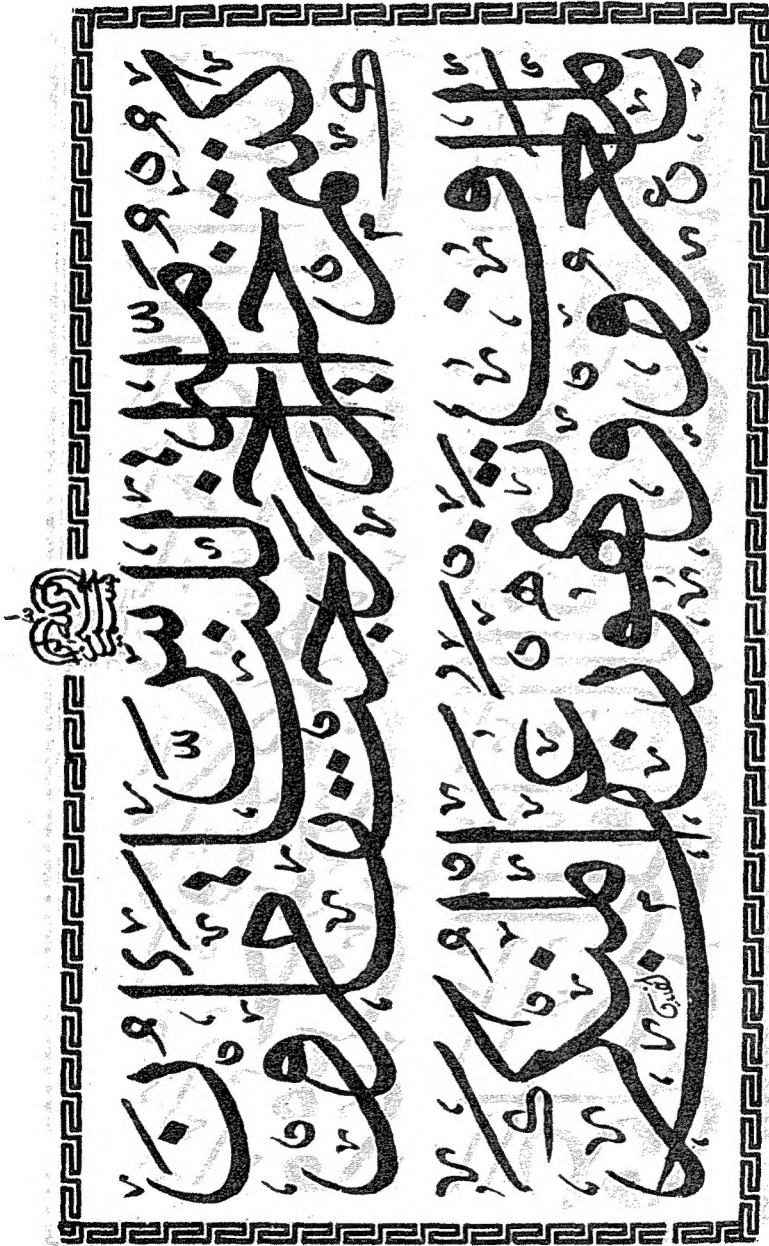 كنتم خير أمة أخرجت للناس تأمرون
بالمعروف وتنهون عن المنكر